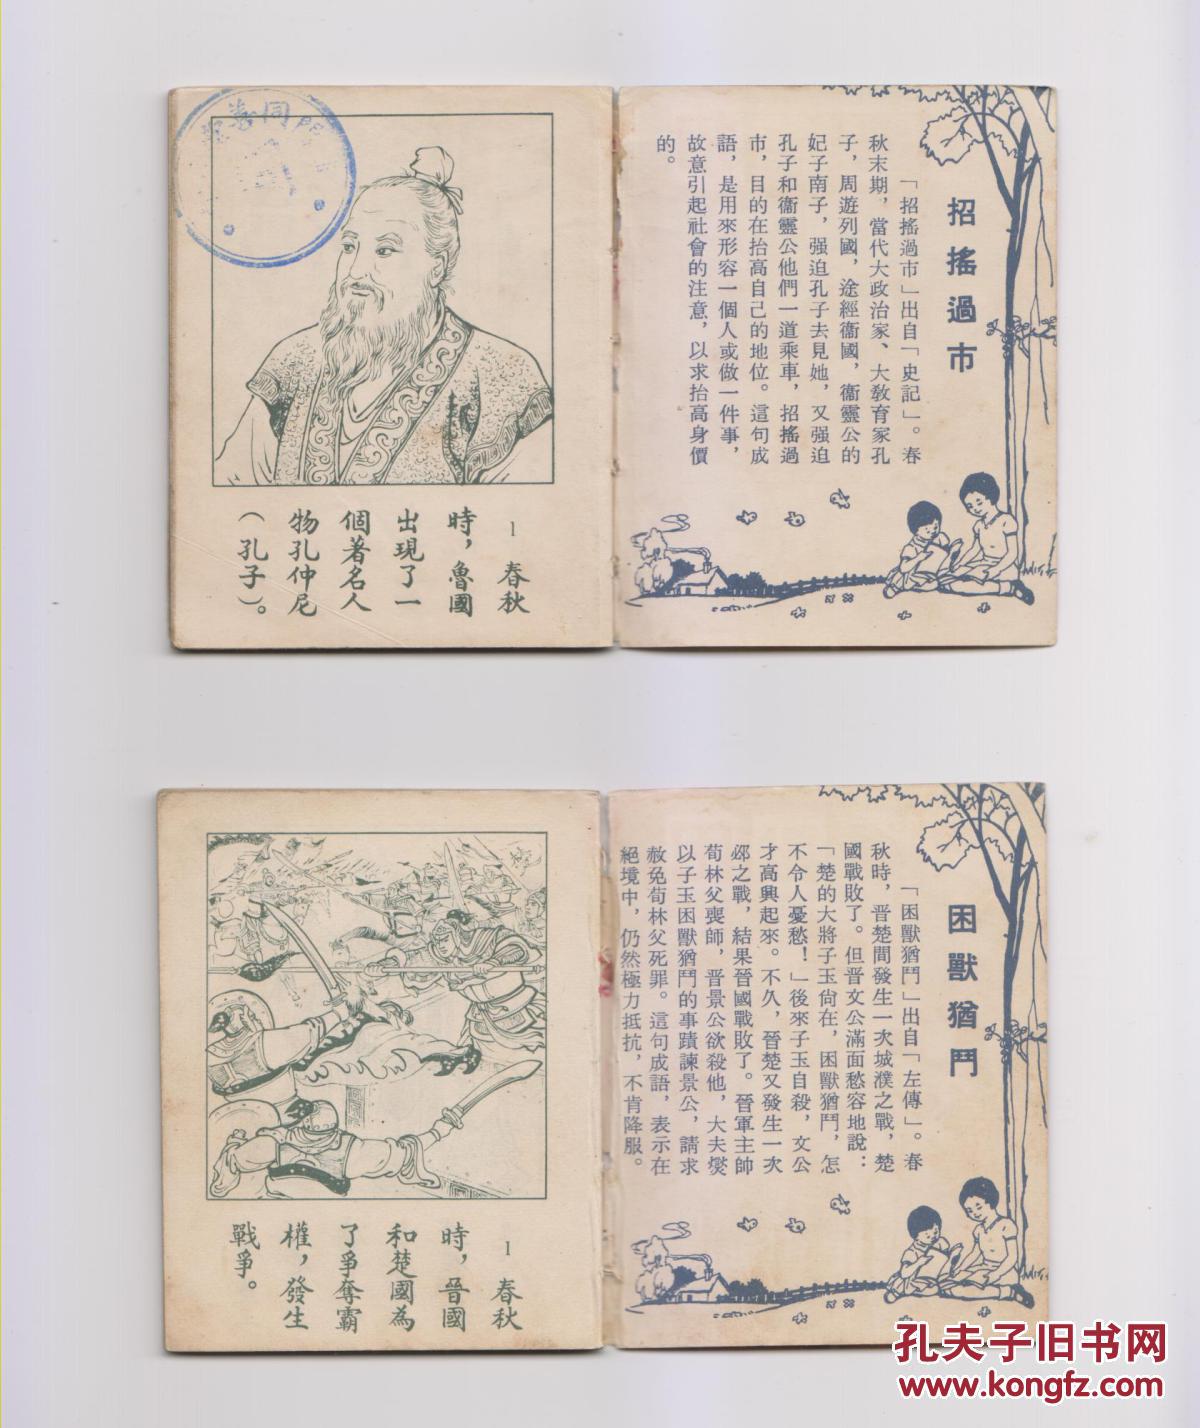 招搖過市
「招搖過市」出自「史記」。春
秋末期，當代大政治家、大教育家孔
子，周遊列國，途經衞國，衞靈公的
妃子南子，强迫孔子去見她，又强迫
孔子和衞靈公他們一道乘車，招搖過
市，目的在抬高自己的地位。這句成
語，是用來形容一個人或做一件事，
故意引起社會的注意，以求抬高身價
的。
1 春秋
時，魯國
出現了一
個著名人
物孔仲尼
（孔子）。
困獸猶鬥
「困獸猶鬥」出自「左傳」。春
秋時，晋楚間發生一次城濮之戰，楚
國戰敗了。但晋文公滿面愁容地說：
「楚的大將子玉尙在，困獸猶鬥，怎
不令人憂愁！」後來子玉自殺，文公
才高興起來。不久，晉楚又發生一次
邲之戰，結果晉國戰敗了。晉軍主帥
荀林父喪師，晋景公欲殺他，大夫
以子玉困獸猶鬥的事蹟諫景公，請求
赦免荀林父死罪。這句成語，表示在
絕境中，仍然極力抵抗，不肯降服。
1 春秋
時，晉國
和楚國為
了爭奪霸
權，發生
戰爭。
孔夫子旧书网
www.kongfz.com